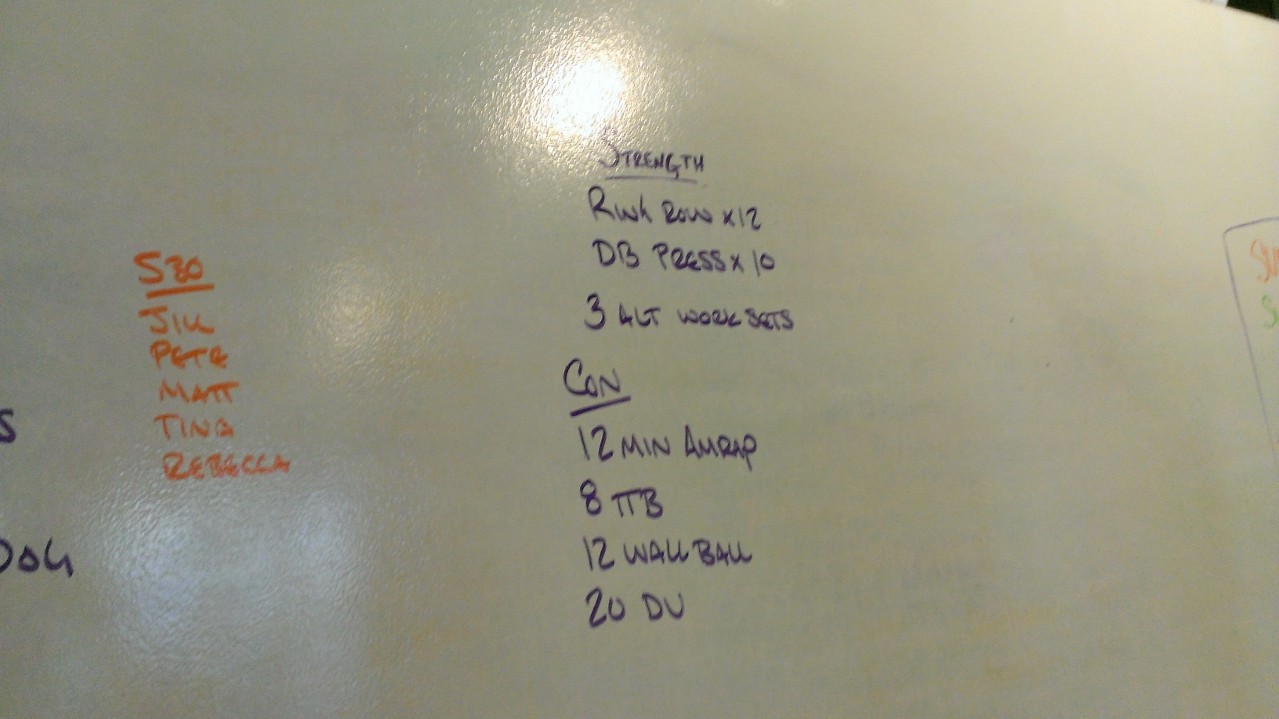 530
JILL
PETE
MATT
TINA
REBECCA
STRENGTH
ROW x 12
DB PRESS x 10
3 ALT WORK SETS
CON
12 MIN AMRAP
8 TTB
12 WALL BALL
20 DU